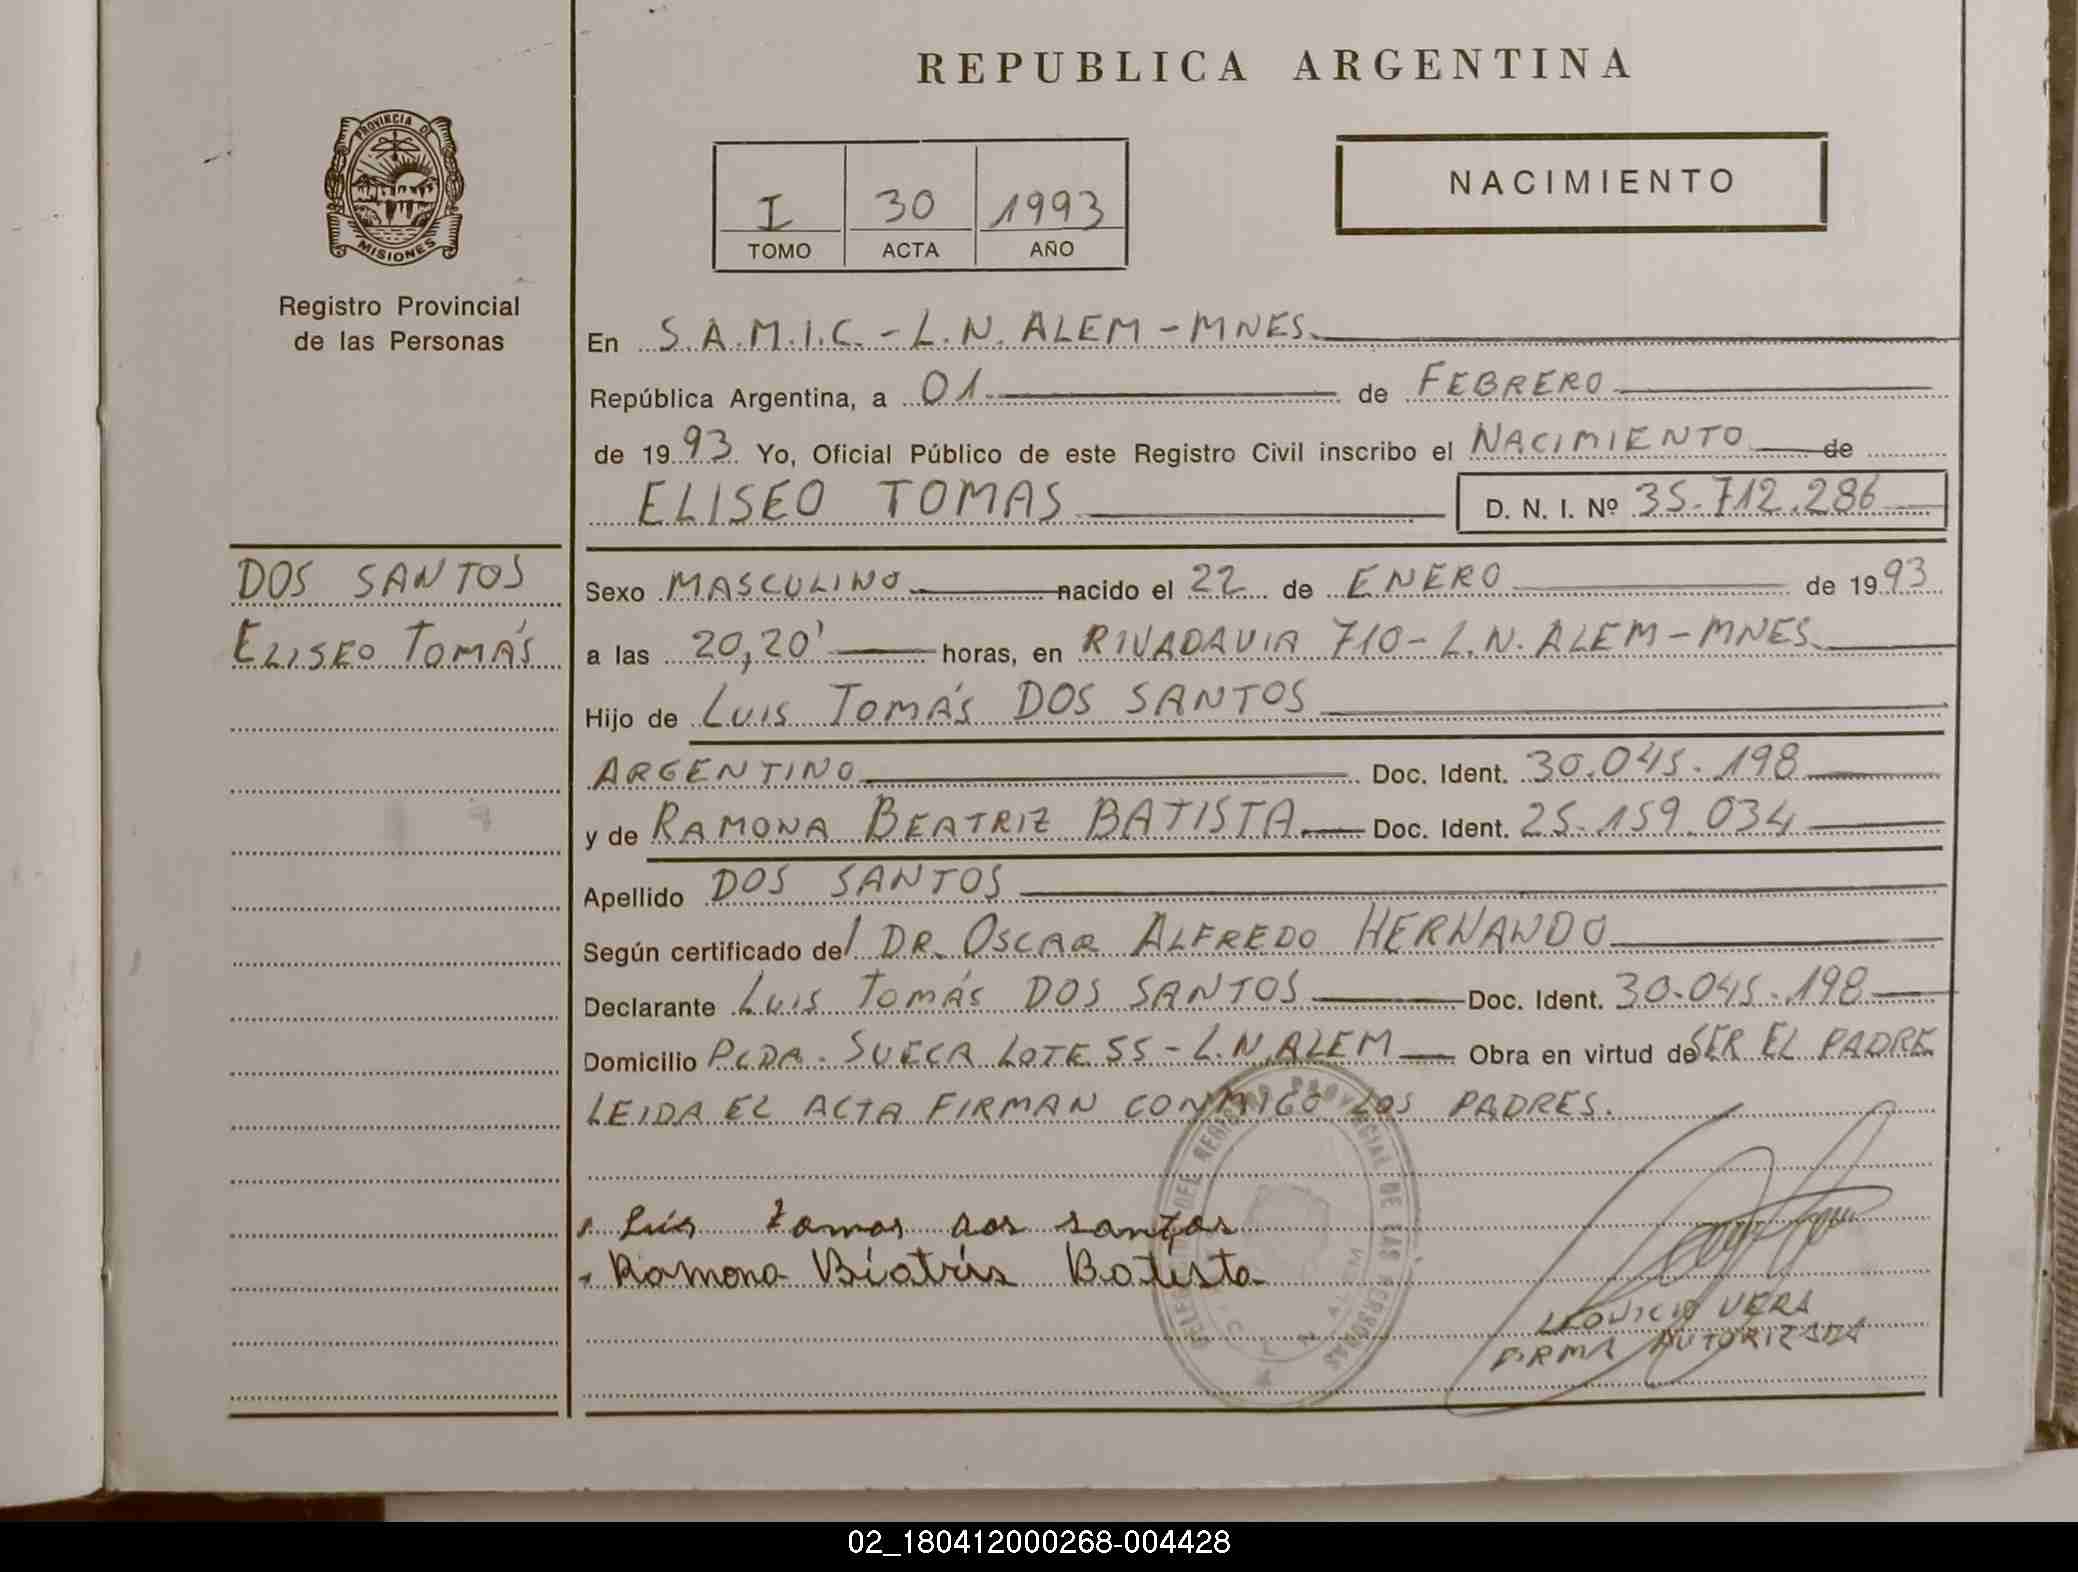 REPUBLICA ARGENTINA
PROVINCIA DE
MISIONES
Registro Provincial
de las Personas
I 30 1993
TOMO ACTA AÑO
NACIMIENTO
En S.A.M.I.C. - L.N. ALEM - MNES.
República Argentina, a 01 de FEBRERO
de 1993 Yo, Oficial Público de este Registro Civil inscribo el NACIMIENTO de
ELISEO TOMAS D. N. I. Nº 35.712.286
DOS SANTOS
ELISEO TOMÁS
Sexo MASCULINO nacido el 22 de ENERO de 1993
a las 20,20' horas, en RIVADAVIA 710 - L.N. ALEM - MNES.
Hijo de LUIS TOMÁS DOS SANTOS
ARGENTINO Doc. Ident. 30.045.198
y de RAMONA BEATRIZ BATISTA Doc. Ident. 25.159.034
Apellido DOS SANTOS
Según certificado del DR. OSCAR ALFREDO HERNANDO
Declarante LUIS TOMÁS DOS SANTOS Doc. Ident. 30.045.198
Domicilio PCDA. SUECA LOTE 55 - L.N. ALEM Obra en virtud de SER EL PADRE
LEIDA EL ACTA FIRMAN CONMIGO LOS PADRES.
Luis tomas dos santos
Ramona Biatris Batista
LEONICIO VERA
FIRMA AUTORIZADA
02_180412000268-004428